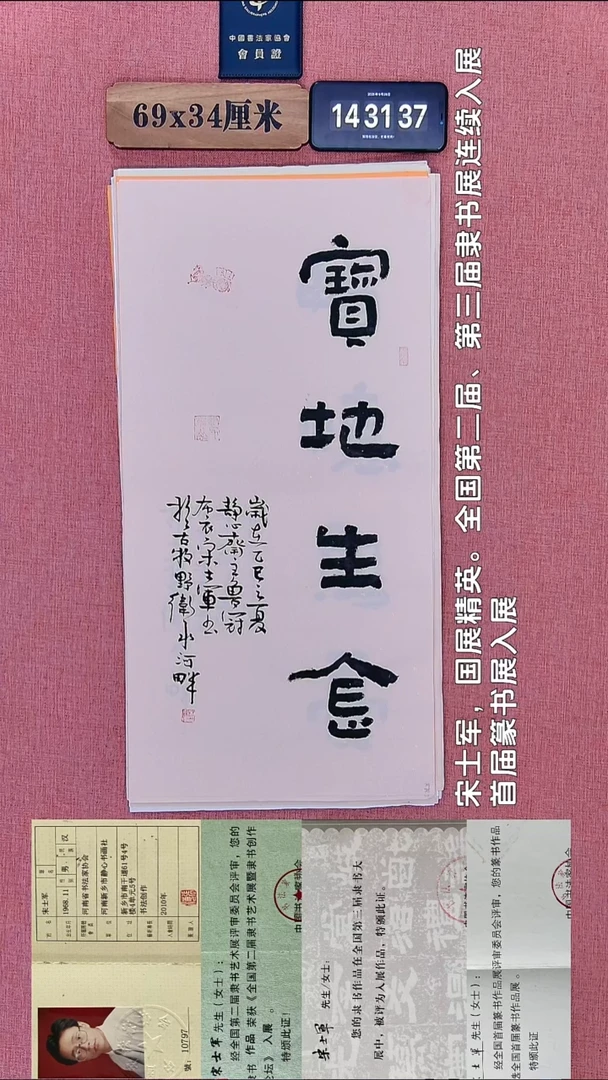 中國書法家協會
會員證
69x34厘米
14 31 37
寶地生
歲在乙巳之夏
静心齋主
布衣宋士軍书
於古牧野衛水河畔
宋士军，国展精英。全国第二届、第三届隶书展连续入展
首届篆书展入展
宋士军
男 汉
1968.11
河南省书法家协会
河南新乡市静心书画社
新乡市南干道61号4号
楼4单元5号
书法创作
2010年
號：10797
宋士军 先生（女士）：
经全国第二届隶书艺术展评审委员会评审，您的
隶书 作品 荣获《全国第二届隶书艺术展暨隶书创作
论坛》入展 。
特颁此证！
宋士军 先生/女士：
您的隶书作品在全国第三届隶书大
展中，被评为入展作品，特颁此证。
士军 先生（女士）：
经全国首届篆书作品展评审委员会评审，您的篆书作品
入选全国首届篆书作品展。
特颁此证